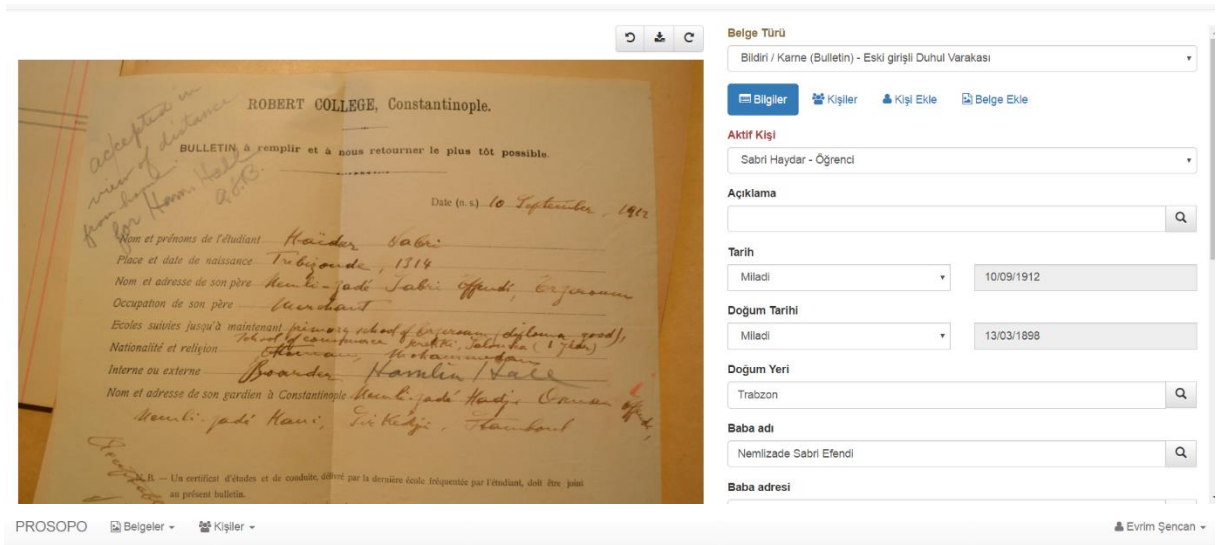 accepted in
view of distance
from home
for Ham. Hall
ROBERT COLLEGE, Constantinople.
BULLETIN à remplir et à nous retourner le plus tôt possible.
Date (n. s.) 10 September, 1912
Nom et prénoms de l'étudiant Haïdar Sabri
Place et date de naissance Trebizonde, 1314
Nom et adresse de son père Nemli-zadé Sabri Effendi, Erzeroum
Occupation de son père Merchant
Ecoles suivies jusqu'à maintenant primary school of Erzeroum (diploma, good),
school of commerce (1 year)
Nationalité et religion Ottoman, Mohammedan
Interne ou externe Boarder Hamlin Hall
Nom et adresse de son gardien à Constantinople Nemli-zadé Hadji Osman Effendi,
Nemli-zadé Hani, Sirkedji, Stamboul
N. B. — Un certificat d'études et de conduite, délivré par la dernière école fréquentée par l'étudiant, doit être joint
au présent bulletin.
Belge Türü
Bildiri / Karne (Bulletin) - Eski girişli Duhul Varakası
Bilgiler Kişiler Kişi Ekle Belge Ekle
Aktif Kişi
Sabri Haydar - Öğrenci
Açıklama
Tarih
Miladi 10/09/1912
Doğum Tarihi
Miladi 13/03/1898
Doğum Yeri
Trabzon
Baba adı
Nemlizade Sabri Efendi
Baba adresi
PROSOPO Belgeler Kişiler Evrim Şencan